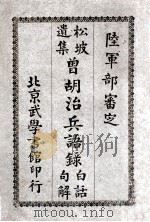 陸軍部審定
松坡遺集
曾胡治兵語錄
白話句解
北京武學書館印行